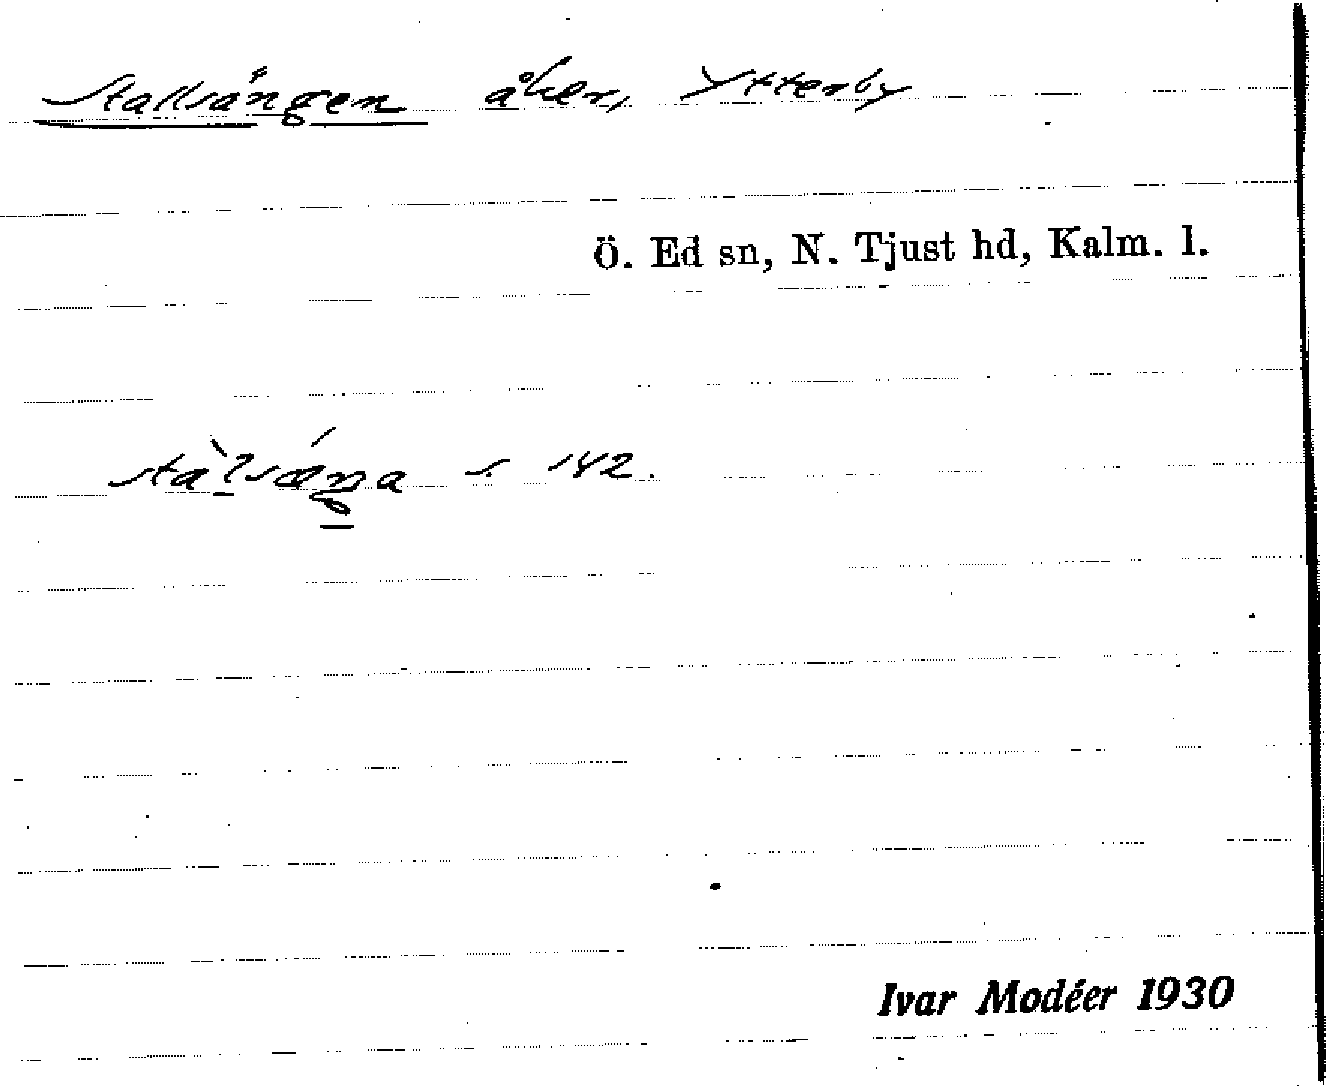 Stallsängen åker, Ytterby
Ö. Ed sn, N. Tjust hd, Kalm. l.
s. 142.
Ivar Modéer 1930